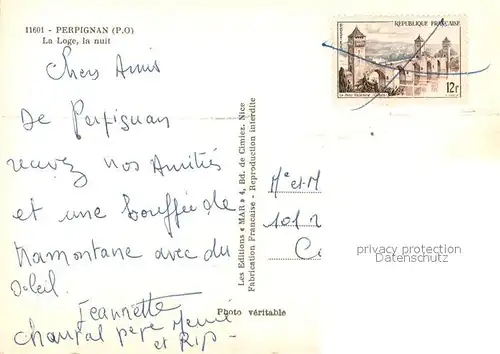 11601 - PERPIGNAN (P.O)
La Loge, la nuit
Chers Amis
De Perpignan
recevez nos Amitiés
et une bouffée de
tramontane avec du
soleil.
Jeannette
Chantal pepe Memé
et Rip -
Les Editions « MAR » 4, Bd. de Cimiez, Nice
Fabrication Française - Reproduction interdite
Photo véritable
REPUBLIQUE FRANÇAISE
12F
Me et M
101
privacy protection
Datenschutz